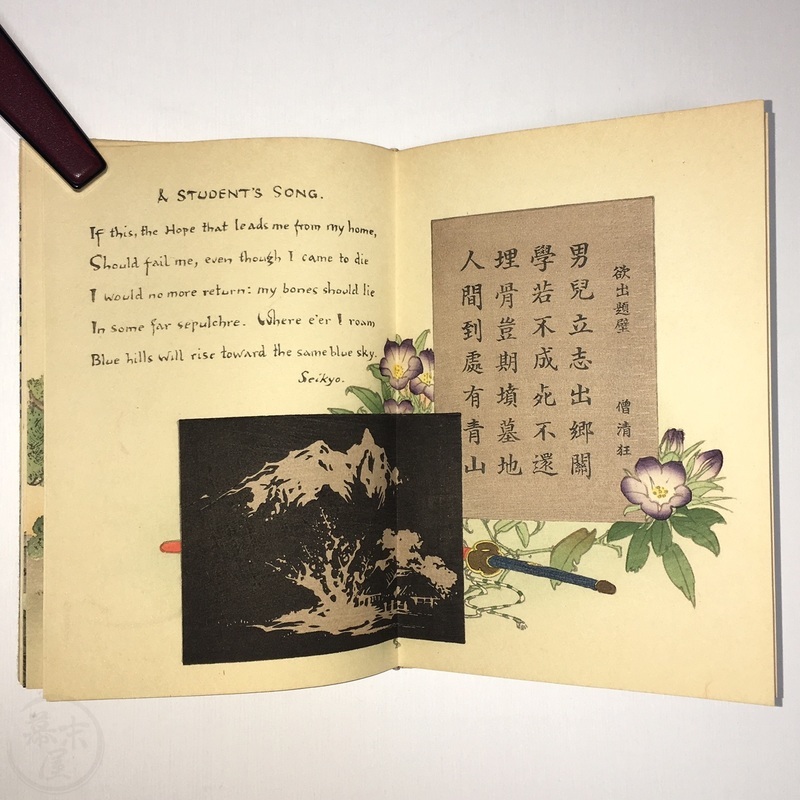 A STUDENT'S SONG.
If this, the Hope that leads me from my home,
Should fail me, even though I came to die
I would no more return: my bones should lie
In some far sepulchre. Where e'er I roam
Blue hills will rise toward the same blue sky.
Seikyo.
欲出題壁
僧清狂
男兒立志出鄉關
學若不成死不還
埋骨豈期墳墓地
人間到處有青山
幕末屋